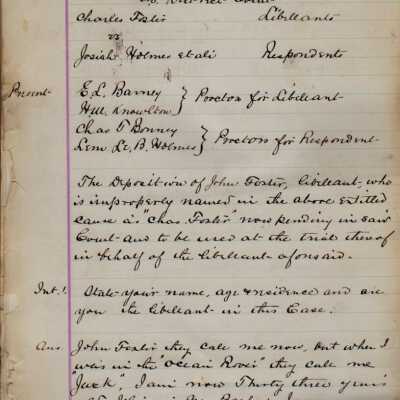 District Court
Charles Foster Libellants
vs
Josiah Holmes et ali Respondents
Present E. L. Barney } Proctors for Libellant
H.M. Knowlton
Chas T Bonney } Proctors for Respondent
Lem Le. B. Holmes
The Deposition of John Foster, libellant, who
is improperly named in the above entitled
cause as "Chas. Foster" now pending in said
Court and to be used at the trial thereof
in behalf of the libellant aforesaid.
Int. 1. State your name, age & residence and are
you the libellant in this Case.
Ans. John Foster they call me now, but when I
was in the "Ocean Rover" they call me
"Jack", I am now Thirty three years